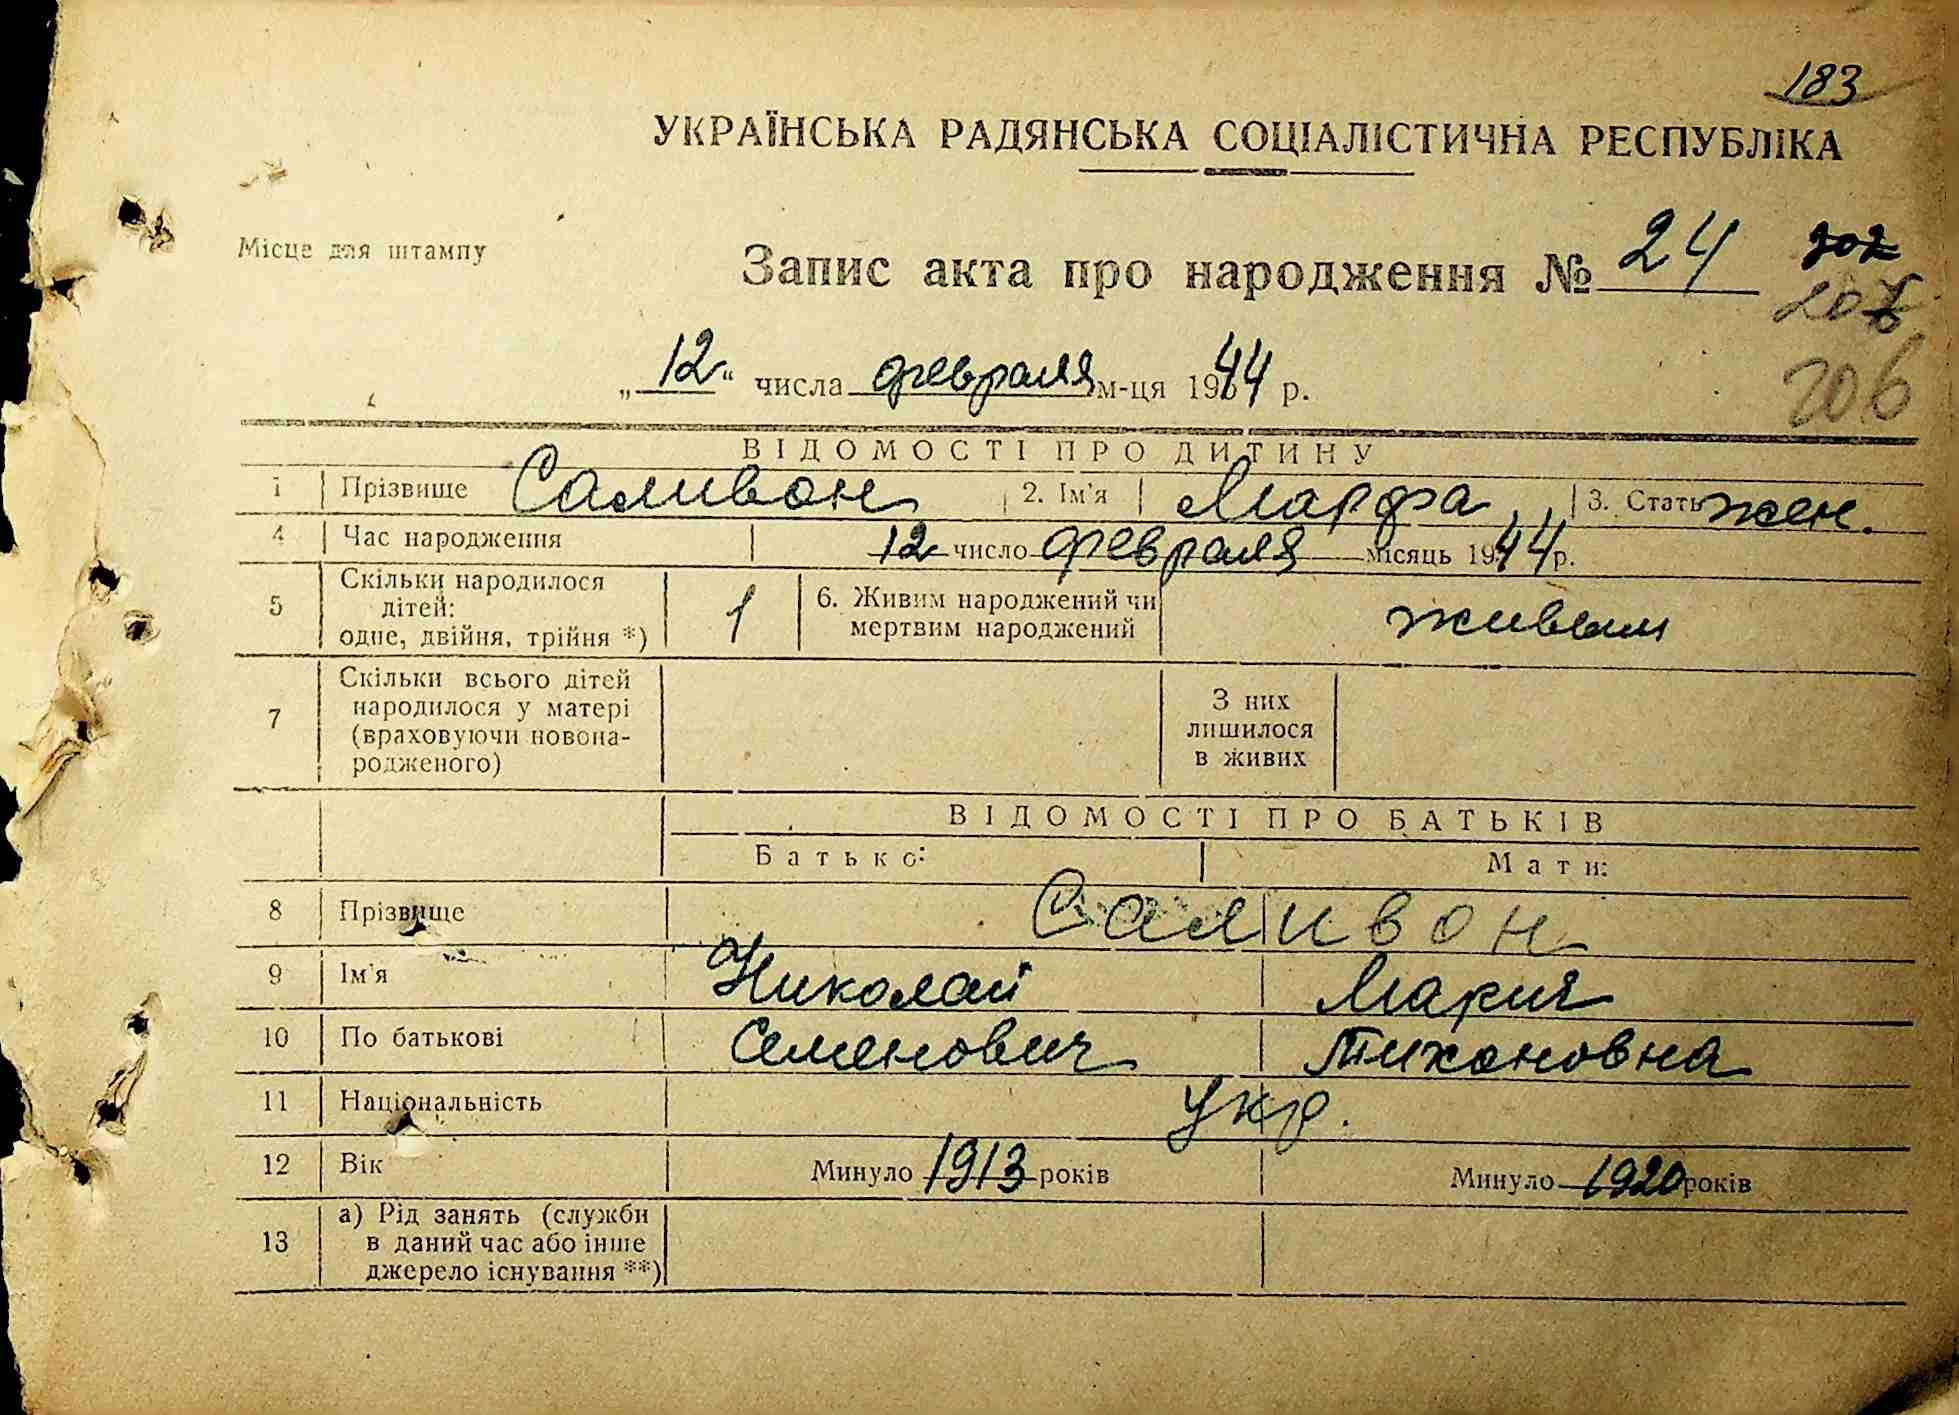 183
УКРАЇНСЬКА РАДЯНСЬКА СОЦІАЛІСТИЧНА РЕСПУБЛІКА
Місце для штампу
Запис акта про народження № 24 202
207
206
„12“ числа февраля м-ця 1944 р.
ВІДОМОСТІ ПРО ДИТИНУ
1 Прізвище Саливон 2. Ім'я Марфа 3. Стать жен.
4 Час народження 12 число февраля місяць 1944 р.
5 Скільки народилося дітей: одне, двійня, трійня *) 1 6. Живим народжений чи мертвим народжений живым
7 Скільки всього дітей народилося у матері (враховуючи новонародженого) З них лишилося в живих
ВІДОМОСТІ ПРО БАТЬКІВ
Батько: Мати:
8 Прізвище Саливон
9 Ім'я Николай Мария
10 По батькові Семенович Тихоновна
11 Національність Укр.
12 Вік Минуло 1913 років Минуло 1920 років
13 а) Рід занять (служби в даний час або інше джерело існування **)